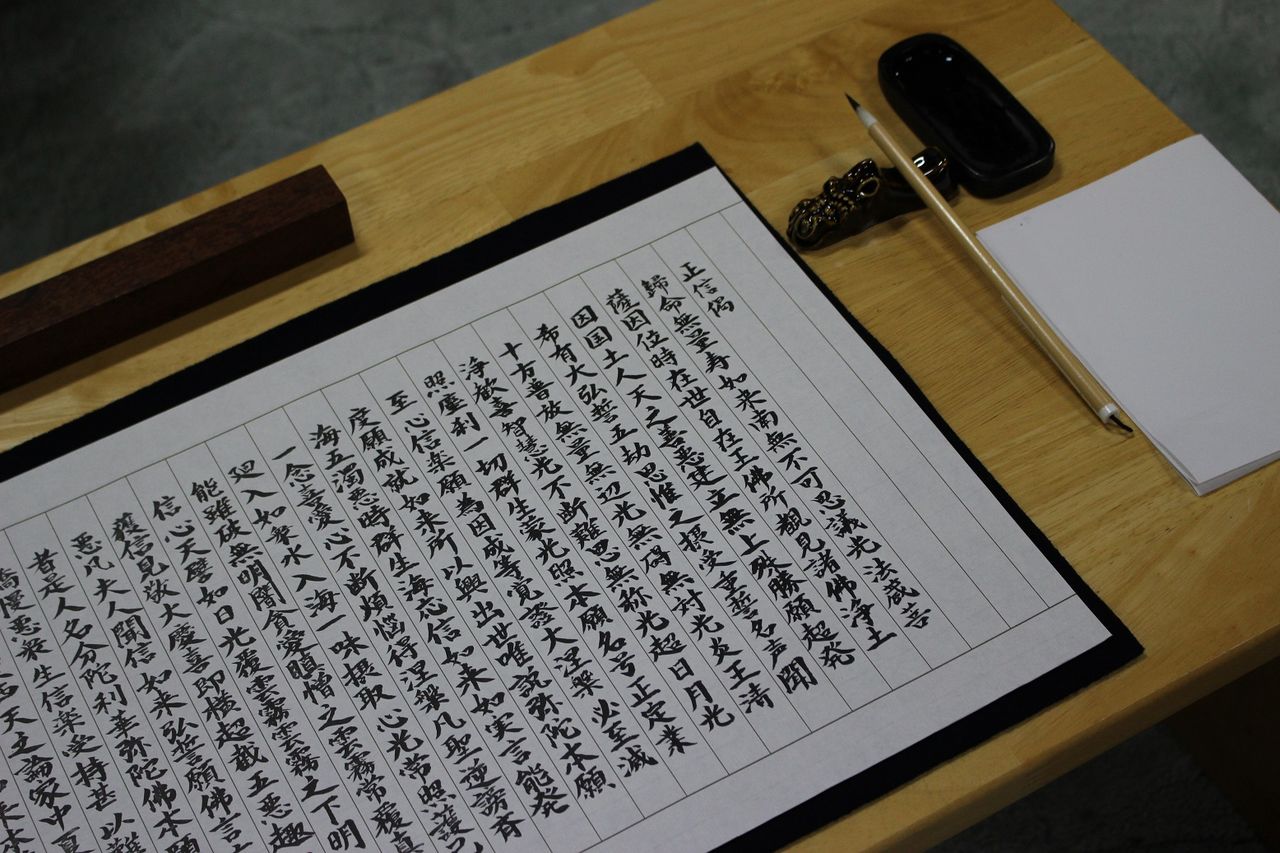 正信偈
歸命無量寿如来南無不可思議光法蔵菩
薩因位時在世自在王佛所覩見諸佛浄土
因国土人天之善悪建立無上殊勝願超発
希有大弘誓五劫思惟之摂受重誓名声聞
十方普放無量無辺光無碍無対光炎王清
浄歓喜智慧光不断難思無称光超日月光
照塵刹一切群生蒙光照本願名号正定業
至心信楽願為因成等覚證大涅槃必至滅
度願成就如来所以興出世唯説弥陀本願
海五濁悪時群生海応信如来如実言能発
一念喜愛心不断煩悩得涅槃凡聖逆謗斉
廻入如衆水入海一味摂取心光常照護已
能雖破無明闇貪愛瞋憎之雲霧常覆真
信心天譬如日光覆雲霧雲霧之下明
獲信見敬大慶喜即横超截五悪趣
悪凡夫人聞信如来弘誓願佛言
者是人名分陀利華弥陀佛本願
憍慢悪衆生信楽受持甚以難
天之論家中夏